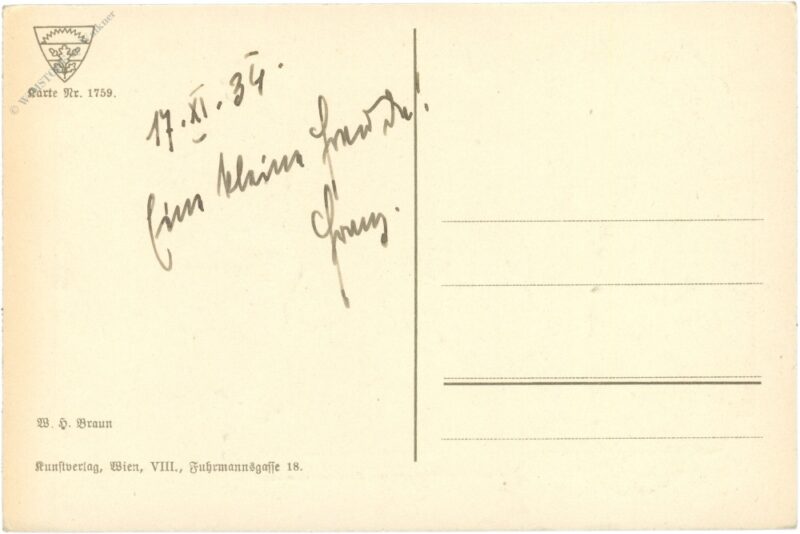 Karte Nr. 1759.
17. XI. 34.
Eine kleine Freude!
Franz.
W. H. Braun
Kunstverlag, Wien, VIII., Fuhrmannsgasse 18.